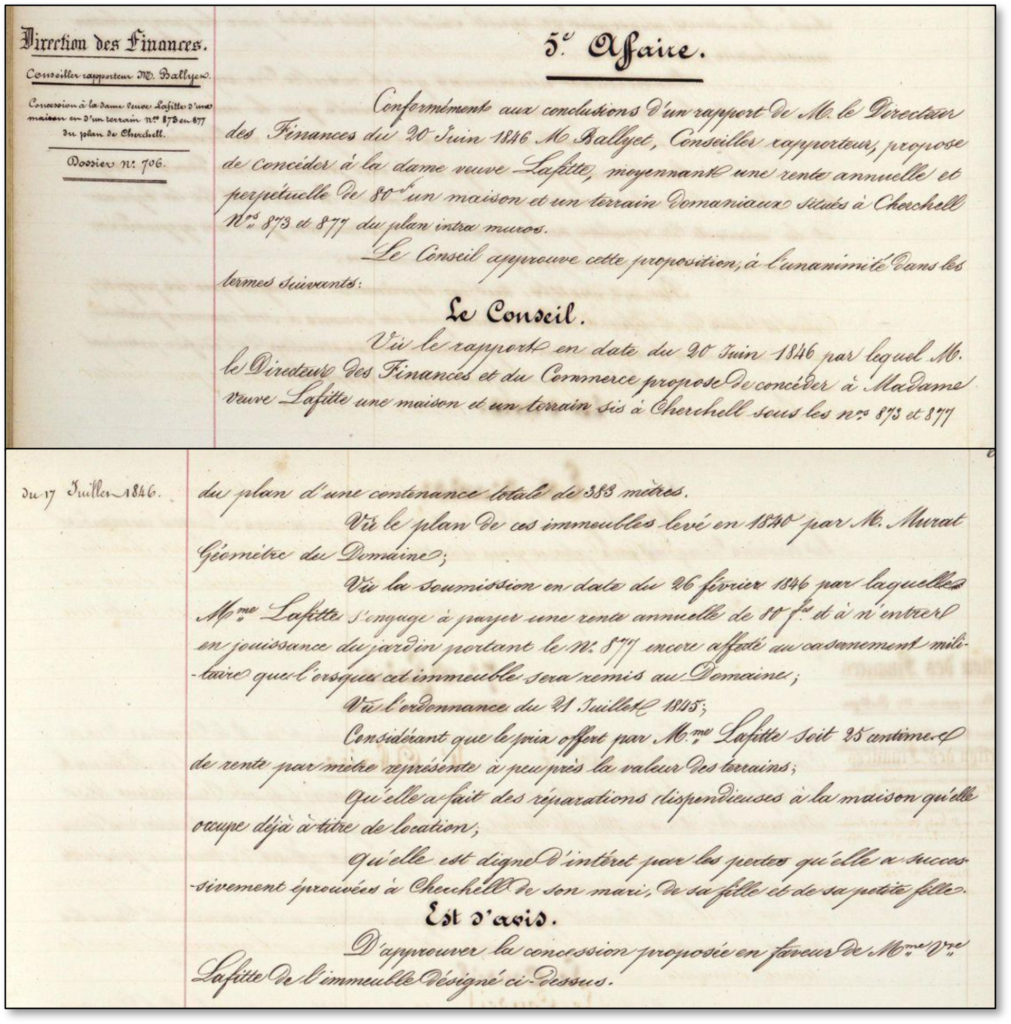 Direction des Finances.
Conseiller rapporteur M. Ballyet.
Concession à la dame veuve Lafitte d'une
maison et d'un terrain nos 873 et 877
du plan de Cherchell.
Dossier no. 706.
5e Affaire.
Conformément aux conclusions d'un rapport de M. le Directeur
des Finances du 20 Juin 1846 M Ballyet, Conseiller rapporteur, propose
de concéder à la dame veuve Lafitte, moyennant une rente annuelle et
perpétuelle de 80 fr un maison et un terrain domaniaux situés à Cherchell
Nos 873 et 877 du plan intra muros.
Le Conseil approuve cette proposition, à l'unanimité dans les
termes suivants:
Le Conseil.
Vu le rapport en date du 20 Juin 1846 par lequel M.
le Directeur des Finances et du Commerce propose de concéder à Madame
veuve Lafitte une maison et un terrain sis à Cherchell sous les nos 873 et 877
du 17 Juillet 1846.
du plan d'une contenance totale de 383 mètres.
Vu le plan de ces immeubles levé en 1840 par M. Murat
Géomètre du Domaine;
Vu la soumission en date du 26 février 1846 par laquelle
Mme Lafitte s'engage à payer une rente annuelle de 80 fcs. et à n'entrer
en jouissance du jardin portant le No. 877 encore affecté au casanement mili-
-taire que l'orsque cet immeuble sera remis au Domaine;
Vu l'ordonnance du 21 Juillet 1845;
Considérant que le prix offert par Mme Lafitte soit 25 centimes
de rente par mètre représente à peu près la valeur des terrains;
Qu'elle a fait des réparations dispendieuses à la maison qu'elle
occupe déjà à titre de location;
Qu'elle est digne d'intérêt par les pertes qu'elle a succes-
-sivement éprouvées à Cherchell de son mari, de sa fille et de sa petite fille.
Est d'avis.
D'approuver la concession proposée en faveur de Mme Vve
Lafitte de l'immeuble désigné ci-dessus.